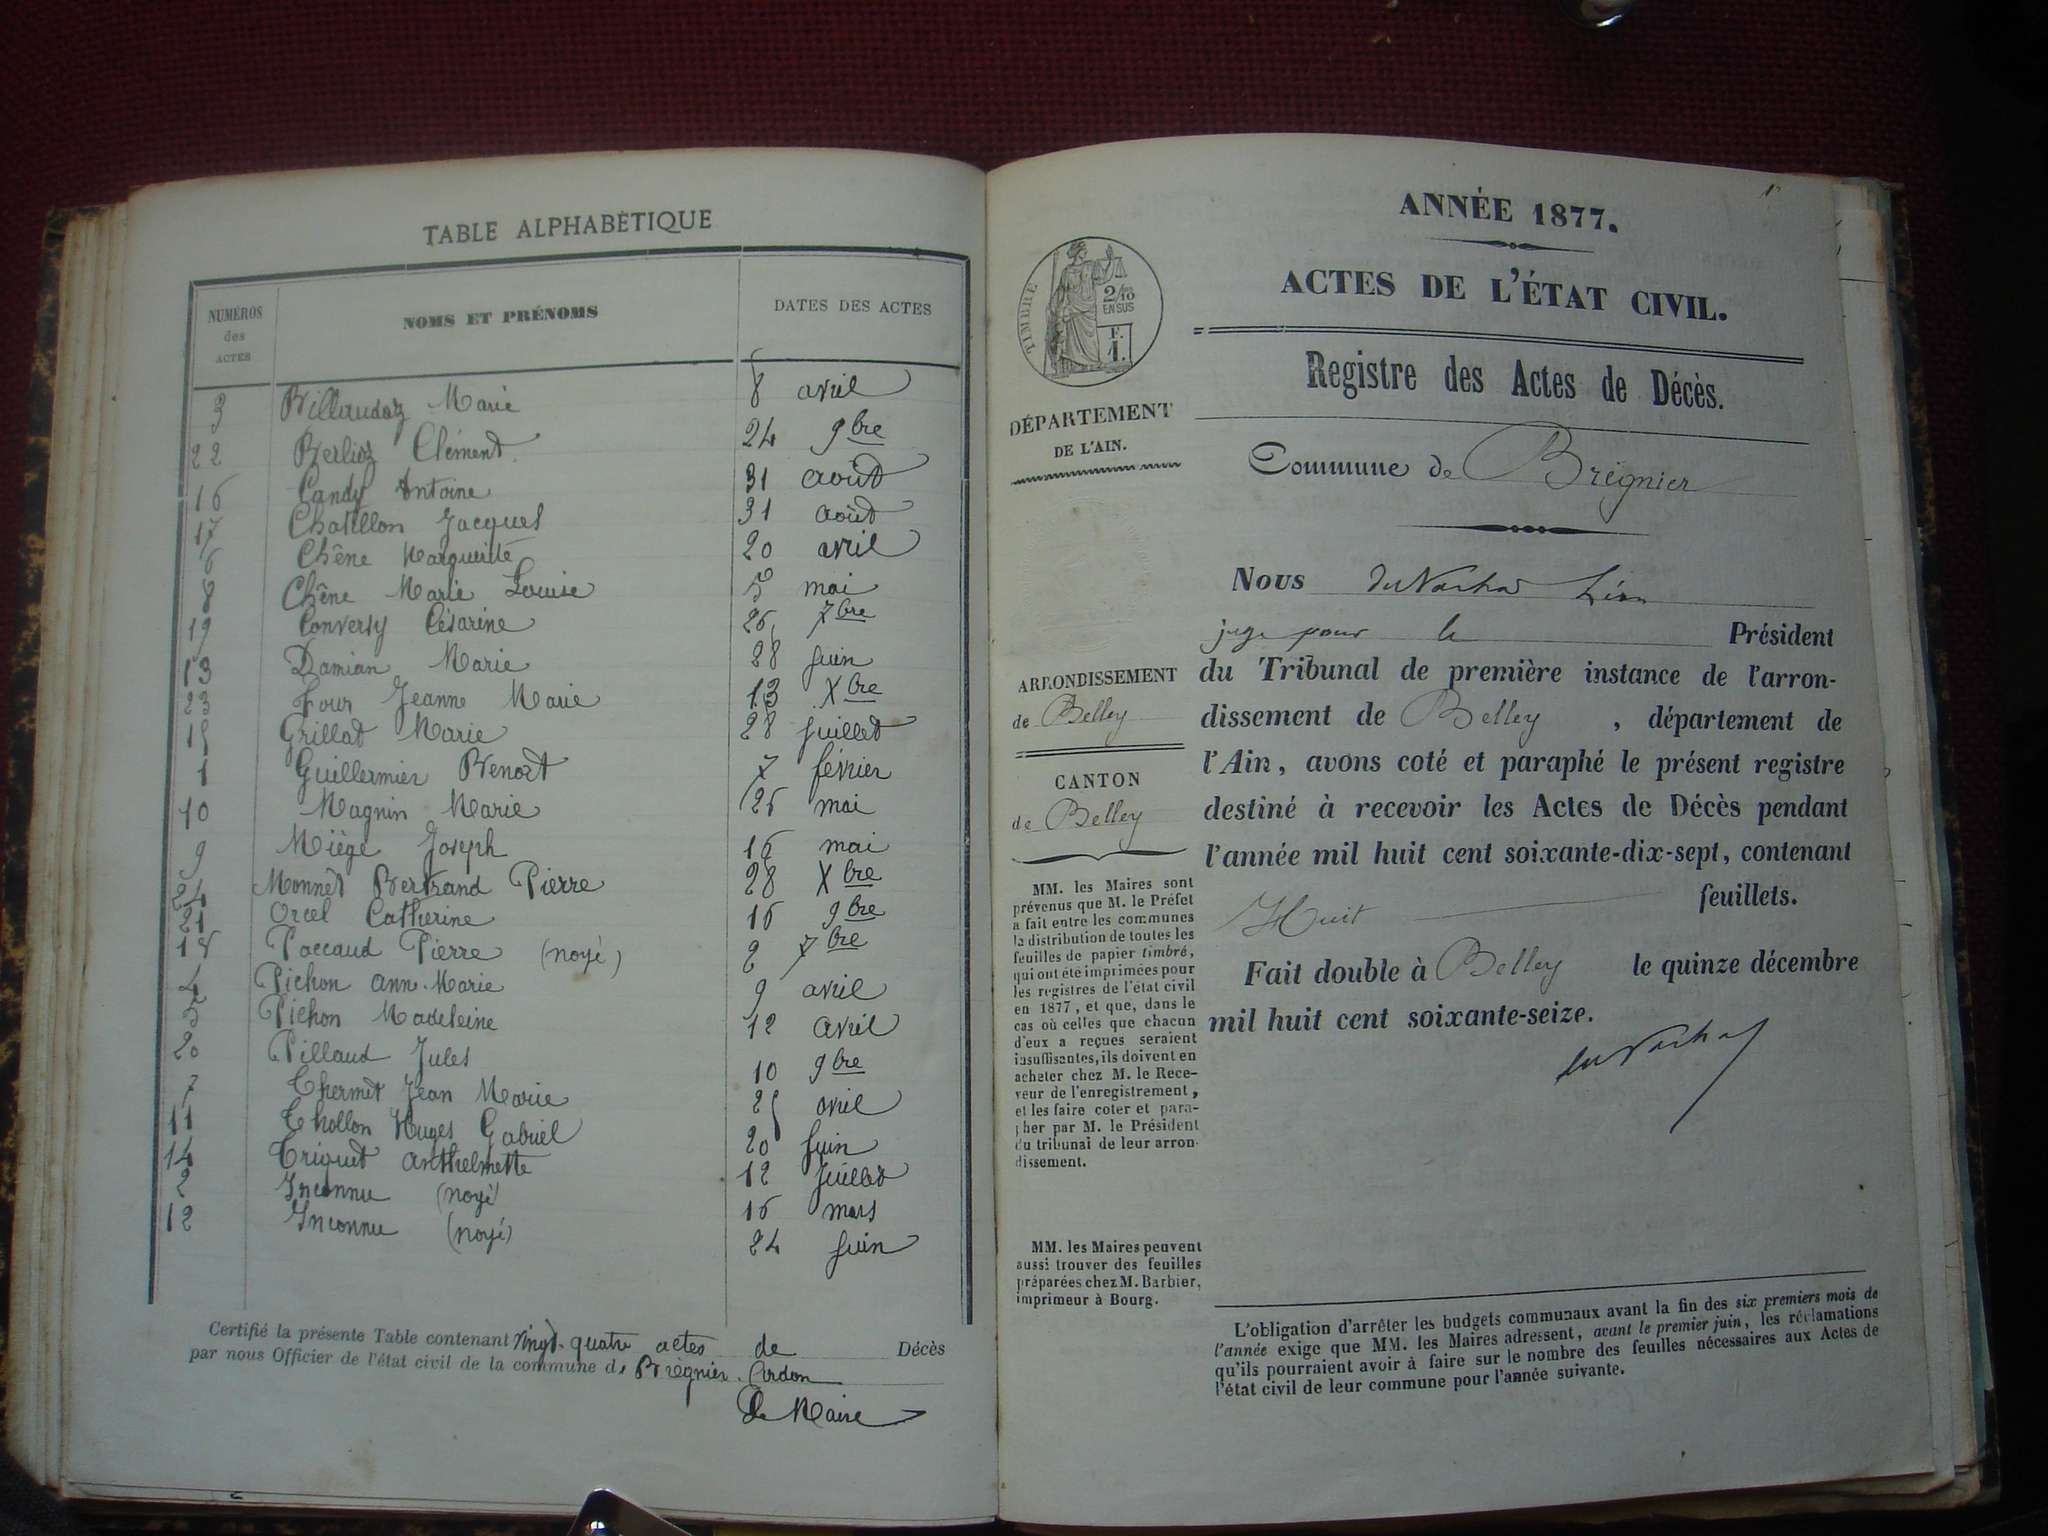 TABLE ALPHABÉTIQUE
NUMÉROS des ACTES NOMS ET PRÉNOMS DATES DES ACTES
3 Billaudaz Marie 8 avril
22 Berlioz Clément 24 9bre
16 Candy Antoine 31 août
17 Chatillon Jacques 31 août
6 Chêne Marguerite 20 avril
8 Chêne Marie Louise 5 mai
19 Conversy Césarine 26 7bre
13 Damian Marie 28 juin
23 Four Jeanne Marie 13 Xbre
15 Grillat Marie 28 juillet
1 Guillermier Benoît 7 février
10 Magnin Marie 26 mai
9 Miège Joseph 16 mai
24 Monnet Bertrand Pierre 28 Xbre
21 Orcel Catherine 16 9bre
18 Paccaud Pierre (noyé) 2 7bre
4 Pichon Ann-Marie 9 avril
5 Pichon Madeleine 12 avril
20 Pillaud Jules 10 9bre
7 Thermet Jean Marie 25 avril
11 Thollon Huges Gabriel 20 juin
14 Triquet Anthelmette 12 juillet
2 Inconnu (noyé) 16 mars
12 Inconnu (noyé) 24 juin
Certifié la présente Table contenant vingt-quatre actes de Décès
par nous Officier de l'état civil de la commune de Brégnier-Cordon
Le Maire
ANNÉE 1877.
ACTES DE L'ÉTAT CIVIL.
Registre des Actes de Décès.
TIMBRE
2/10 EN SUS
F. 1.
DÉPARTEMENT
DE L'AIN.
Commune de Brégnier
Nous Léon
juge pour le Président
du Tribunal de première instance de l'arron-
dissement de Belley, département de
l'Ain, avons coté et paraphé le présent registre
destiné à recevoir les Actes de Décès pendant
l'année mil huit cent soixante-dix-sept, contenant
Huit feuillets.
Fait double à Belley le quinze décembre
mil huit cent soixante-seize.
ARRONDISSEMENT
de Belley
CANTON
de Belley
MM. les Maires sont
prévenus que M. le Préfet
a fait entre les communes
la distribution de toutes les
feuilles de papier timbré,
qui ont été imprimées pour
les registres de l'état civil
en 1877, et que, dans le
cas où celles que chacun
d'eux a reçues seraient
insuffisantes, ils doivent en
acheter chez M. le Rece-
veur de l'enregistrement,
et les faire coter et para-
pher par M. le Président
du tribunal de leur arron-
dissement.
MM. les Maires peuvent
aussi trouver des feuilles
préparées chez M. Barbier,
imprimeur à Bourg.
L'obligation d'arrêter les budgets communaux avant la fin des six premiers mois de
l'année exige que MM. les Maires adressent, avant le premier juin, les réclamations
qu'ils pourraient avoir à faire sur le nombre des feuilles nécessaires aux Actes de
l'état civil de leur commune pour l'année suivante.